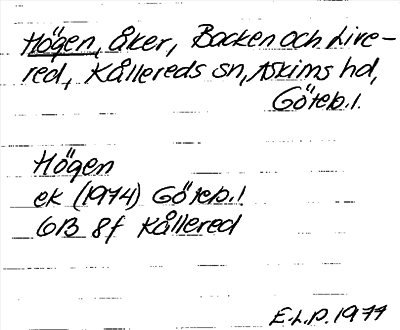 Högen, Åker, Backen och Live-
red, Kållereds sn, Askims hd,
Göteb.l.
Högen
ek (1974) Göteb.l.
6B 8f Kållered
E.L.P. 1977